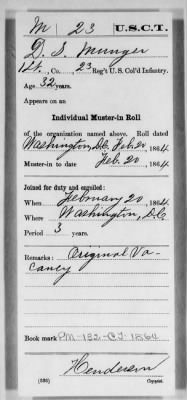 M 23 U.S.C.T.
D. S. Munger
Lt., Co. , 23 Reg't U. S. Col'd Infantry.
Age 32 years.
Appears on an
Individual Muster-in Roll
of the organization named above. Roll dated
Washington, D.C. Feb. 20, 1864.
Muster-in to date Feb. 20, 1864
Joined for duty and enrolled:
When February 20, 1864.
Where Washington, D.C.
Period 3 years.
Remarks: Original Va-
cancy
Book mark PM-132-CT-1864
Henderson
(336) Copyist.